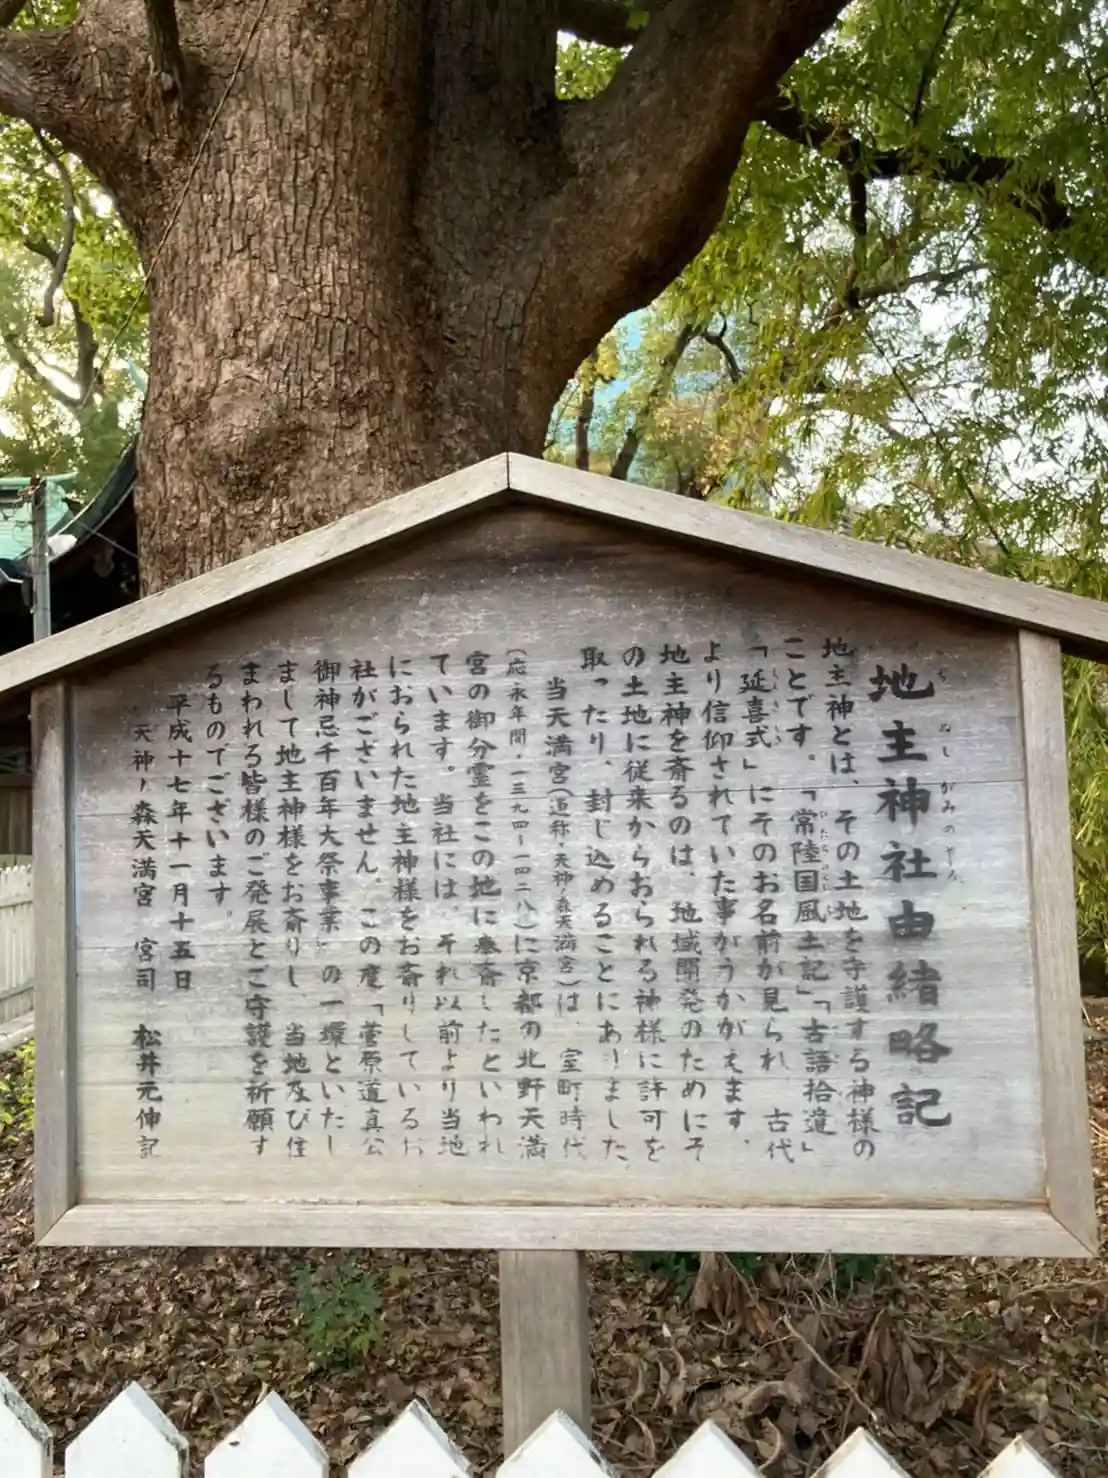 地主神社由緒略記
地主神とは、その土地を守護する神様の
ことです。「常陸国風土記」「古語拾遺」
「延喜式」にそのお名前が見られ、古代
より信仰されていた事がうかがえます。
地主神を斎るのは、地域開発のためにそ
の土地に従来からおられる神様に許可を
取ったり、封じ込めることにありました。
当天満宮(通称・天神ノ森天満宮)は、室町時代
(応永年間・一三九四―一四二八)に京都の北野天満
宮の御分霊をこの地に奉斎したといわれ
ています。当社には、それ以前より当地
におられた地主神様をお斎りしているお
社がございません。この度「菅原道真公
御神忌千百年大祭事業」の一環といたし
まして地主神様をお斎りし、当地及び住
まわれる皆様のご発展とご守護を祈願す
るものでございます。
平成十七年十一月十五日
天神ノ森天満宮 宮司 松井元伸記